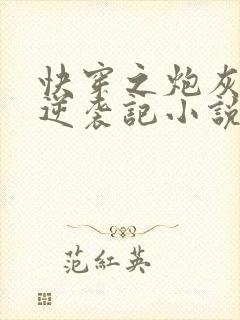 快穿之炮灰
逆袭記小説
范紅英